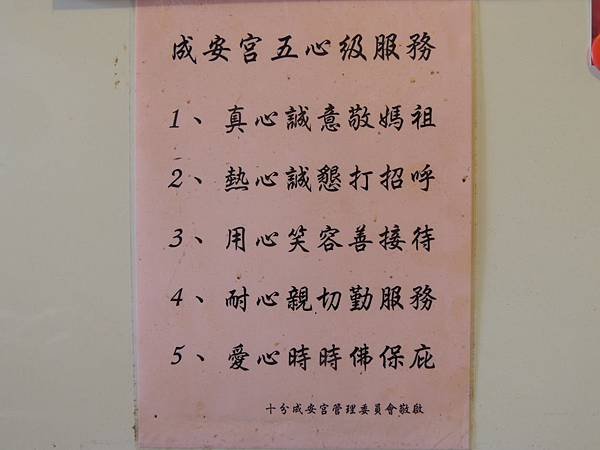 成安宮五心級服務
1、真心誠意敬媽祖
2、熱心誠懇打招呼
3、用心笑容善接待
4、耐心親切勤服務
5、愛心時時佛保庇
十分成安宮管理委員會敬啟